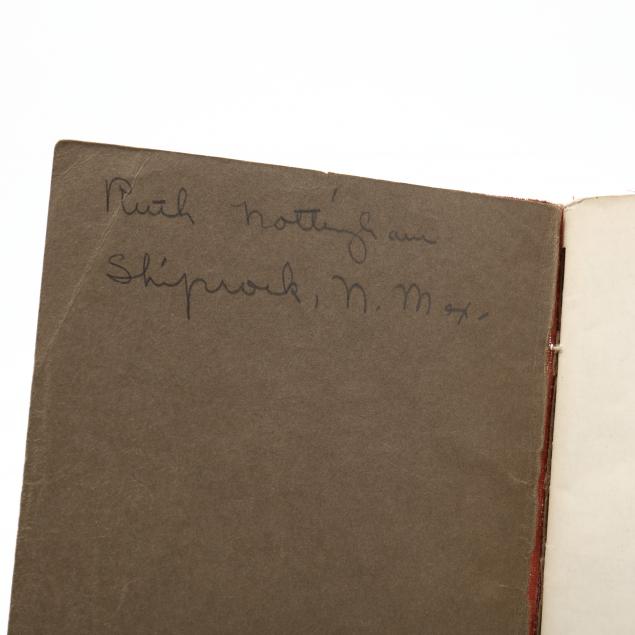 Ruth Nottingham
Shiprock, N. Mex.